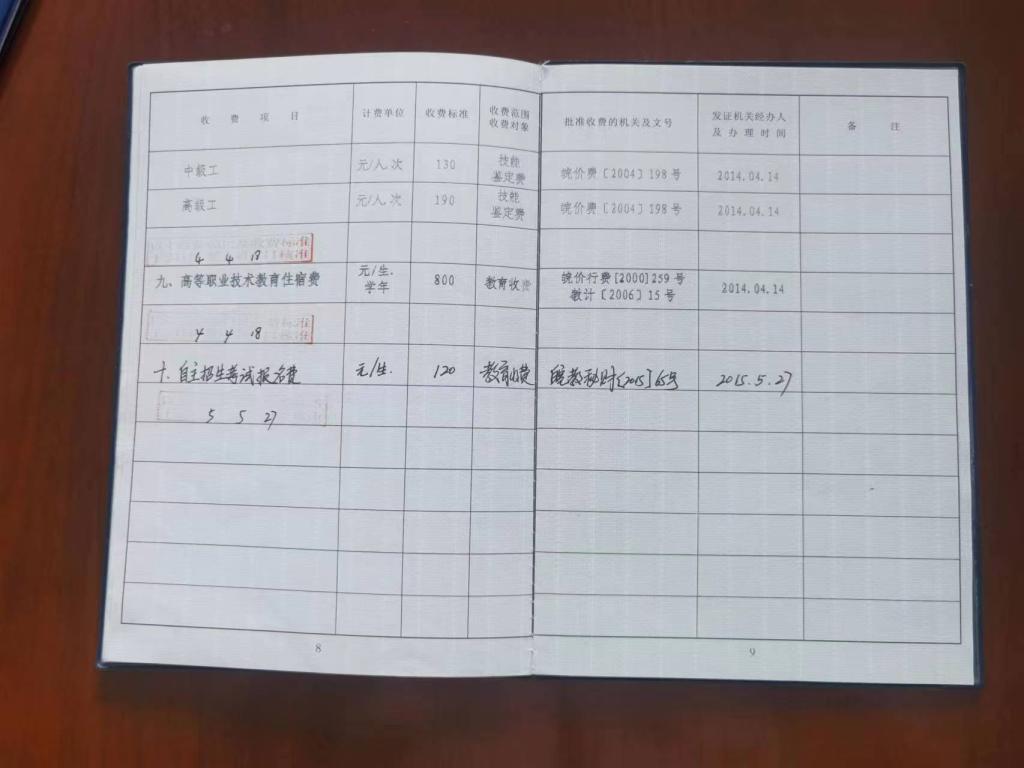 收费项目 计费单位 收费标准 收费范围 收费对象 批准收费的机关及文号 发证机关经办人及办理时间 备注
中级工 元/人.次 130 技能鉴定费 皖价费〔2004〕198号 2014.04.14
高级工 元/人.次 190 技能鉴定费 皖价费〔2004〕198号 2014.04.14
4 4 18
九、高等职业技术教育住宿费 元/生.学年 800 教育收费 皖价行费[2000]259号 教计〔2006〕15号 2014.04.14
4 4 18
十、自主招生考试报名费 元/生. 120 教育收费 皖教秘财〔2015〕65号 2015.5.27
5 5 27
8
9